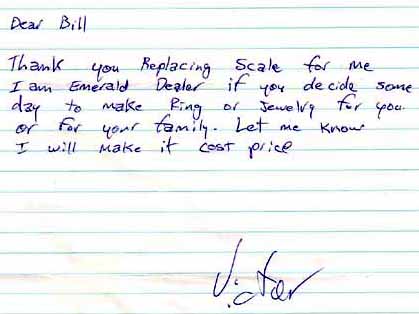 Dear Bill
Thank you Replacing Scale for me
I am Emerald Dealer if you decide some
day to make Ring or Jewelry for you
or for your family. Let me know
I will make it cost price
Victor